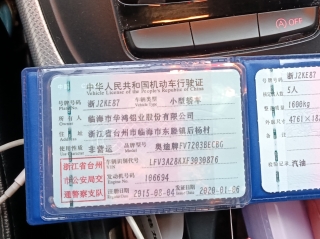 中华人民共和国机动车行驶证
Vehicle License of the People's Republic of China
号牌号码 浙J2KE87 车辆类型 小型轿车
所有人 临海市华鸿铝业股份有限公司
住址 浙江省台州市临海市东塍镇后杨村
使用性质 非营运 品牌型号 奥迪牌FV7203BECBG
浙江省台州
市公安局交
通警察支队
车辆识别代号 LFV3A28KXF3030876
发动机号码 106694
注册日期 2015-08-04 发证日期 2020-01-06
浙J2KE87
5人
1600kg
汽油